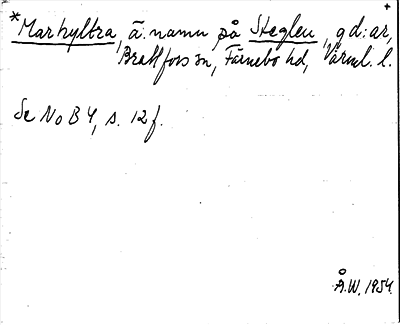 *Markyltra, ä. namn på Steglen, gd:ar,
Brattfors sn, Färnebo hd, Värml. l.
Se NoB 4, s. 12 f.
Å.W. 1954.